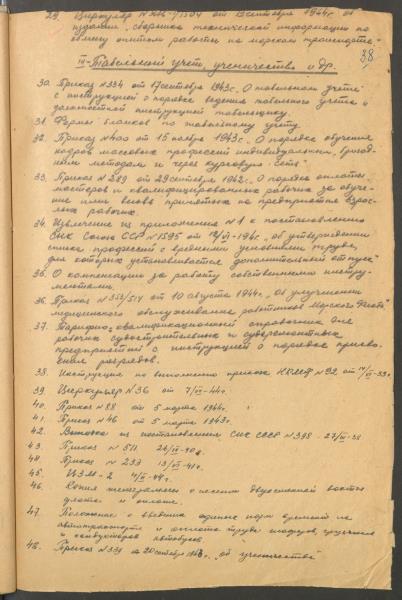 29. Циркуляр № 1504 от 13 сентября 1944г. об
издании „сборника технической информации по
обмену опытом работы на морском транспорте“
38
IV - Табельный учет, ученичество и др.
30. Приказ №334 от 17 сентября 1943г. О табельном учете
с инструкцией о порядке ведения табельного учета и
должностной инструкцией табельщику.
31. Формы бланков по табельному учету
32. Приказ №400 от 15 ноября 1943г. „О порядке обучения
кадров массовых профессий индивидуальным, бригад-
ным методами и через курсовую сеть“
33. Приказ №289 от 29 сентября 1942г. О порядке оплаты
мастеров и квалифицированных рабочих за обуче-
ние ими вновь принятых на предприятия взрос-
лых рабочих.
34. Извлечение из приложения №1 к постановлению
СНК Союза ССР №1595 от „Об утверждении
списка профессий с вредными условиями труда,
для которых устанавливается дополнительный отпуск“
35. О компенсации за работу собственными инстру-
ментами.
36. Приказ №353/514 от 10 августа 1944г. „Об улучшении
медицинского обслуживания работников Морского Флота“
37. Тарифно-квалификационный справочник для
рабочих судостроительных и судоремонтных
предприятий с инструкцией о порядке присво-
ения разрядов.
38. Инструкция по выполнению приказа НКМФ №92 от
39. Циркуляр №36 от 7/VI-44г.
40. Приказ №88 от 5 марта 1944г.
41. Приказ №46 от 5 марта 1943г.
42. Выписка из постановления СНК СССР №398 - 27/III-38
43. Приказ №511 26/VI-40г.
44. Приказ №233 13/VI-41г.
45. ИЗМ-2 4/VI-44г.
46. Копия телеграммы о несении двухсменной вахты
флоте и оплате
47. Положение о введении единых норм времени на
автотранспорте и оплате труда шоферов, грузчиков
и кондукторов автобусов
48. Приказ №339 от 20 сентября 1943г. „об ученичестве“